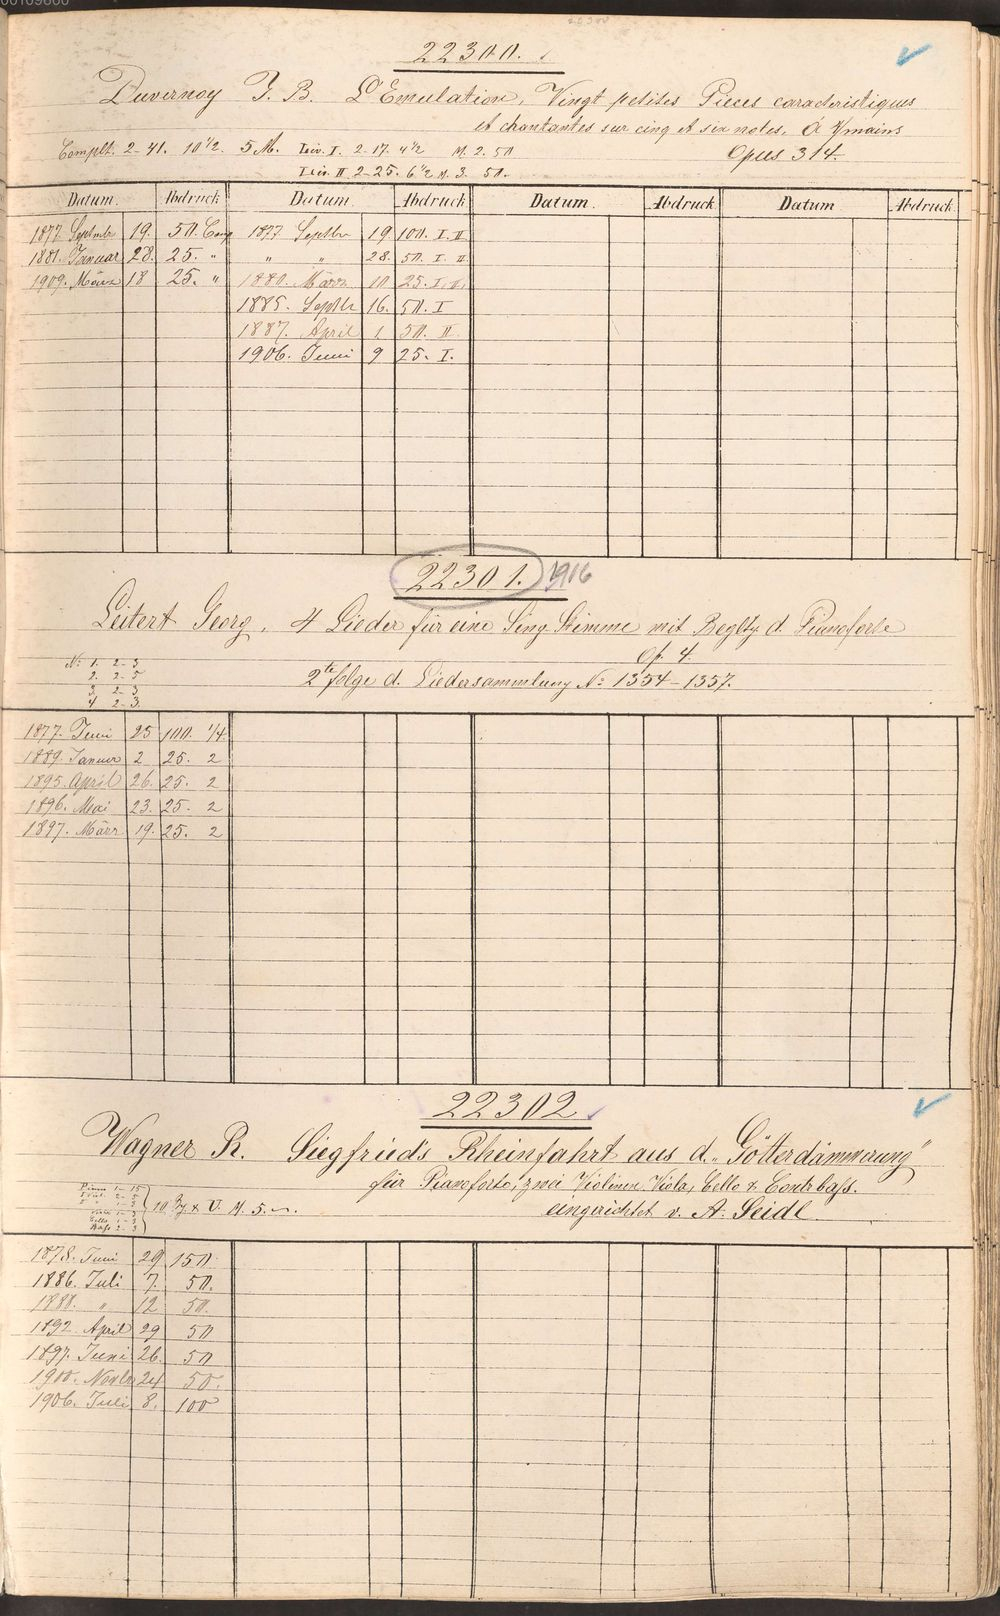 22300.
Duvernoy J. B. L'Emulation, Vingt petites Pièces caracteristiques
et chantantes sur cinq et six notes, à 4/mains
Opus 314.
Complt. 2-41. 10 1/2. 5 M. Liv. I. 2-17. 4 1/2 M. 2. 50
Liv. II 2-25. 6 1/2 M. 3. 50.
Datum. Abdruck Datum. Abdruck Datum. Abdruck Datum. Abdruck
1877. Septmbr 19. 50. Comp 1877 Septbr 19 100. I. II
1881. Januar 28. 25. " " " 28. 50. I. II.
1909. März 18 25. " 1880. März 10 25. I. II.
1885. Septbr 16. 50. I
1887. April 1. 50. II.
1906. Juni 9 25. I.
22301. 1916
Leitert Georg, 4 Lieder für eine Sing Stimme mit Begltg d. Pianoforte
Op. 4.
2te folge d. Liedersammlung No 1354-1357.
No 1. 2-3
2. 2-5
3. 2-3
4 2-3.
1877. Juni 25 100. 1/4
1889. Januar 2 25. 2
1895. April 26. 25. 2
1896. Mai 23. 25. 2
1897. März 19. 25. 2
22302
Wagner R. Siegfried's Rheinfahrt aus d. "Götterdämmerung"
für Pianoforte, zwei Violinen, Viola, Cello & Contrbass.
eingerichtet v. A. Seidl
Piano 1-15
Cello 1-3
Bass 2-3
10 M. 5.
1878. Juni 29 150.
1886. Juli 7. 50.
1888. " 12 50.
1892 April 29 50
1897. Juni 26. 50
1900. Novbr 24 50.
1906. Juli 8. 100